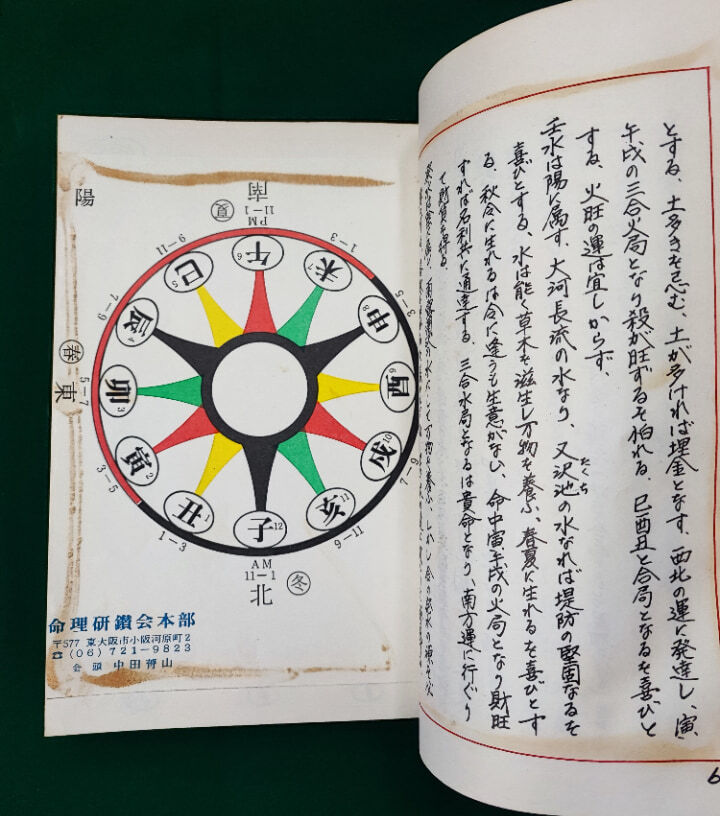 とする、土多きを忌む、土が多ければ埋金となす、西北の運に発達し、寅
午戌の三合火局となり殺が旺ずるを怕れる、巳酉丑と合局となるを喜びと
する、火旺の運は宜しからず、
壬水は陽に属す、大河長流の水なり、又沢池の水なれば堤防の堅固なるを
たくち
喜びとする、水は能く草木を滋生し万物を養ふ、春夏に生れるを喜びとす
る、秋冬に生れるは令に逢うも生意がない、命中寅午戌の火局となり財旺
すれば名利共に通達する、三合水局となるは貴命となり、南方運に行ぐり
て財貨を得る、
陽
南
PM
11-1
夏
1-3
3-5
7-9
9-11
AM
11-1
北
冬
1-3
3-5
5-7
東
春
7-9
9-11
午6
未7
申8
酉9
戌10
亥11
子12
丑1
寅2
卯3
辰4
巳5
命理研鑽会本部
〒577 東大阪市小阪河原町2
☎(06)721-9823
会頭 中田脊山
6